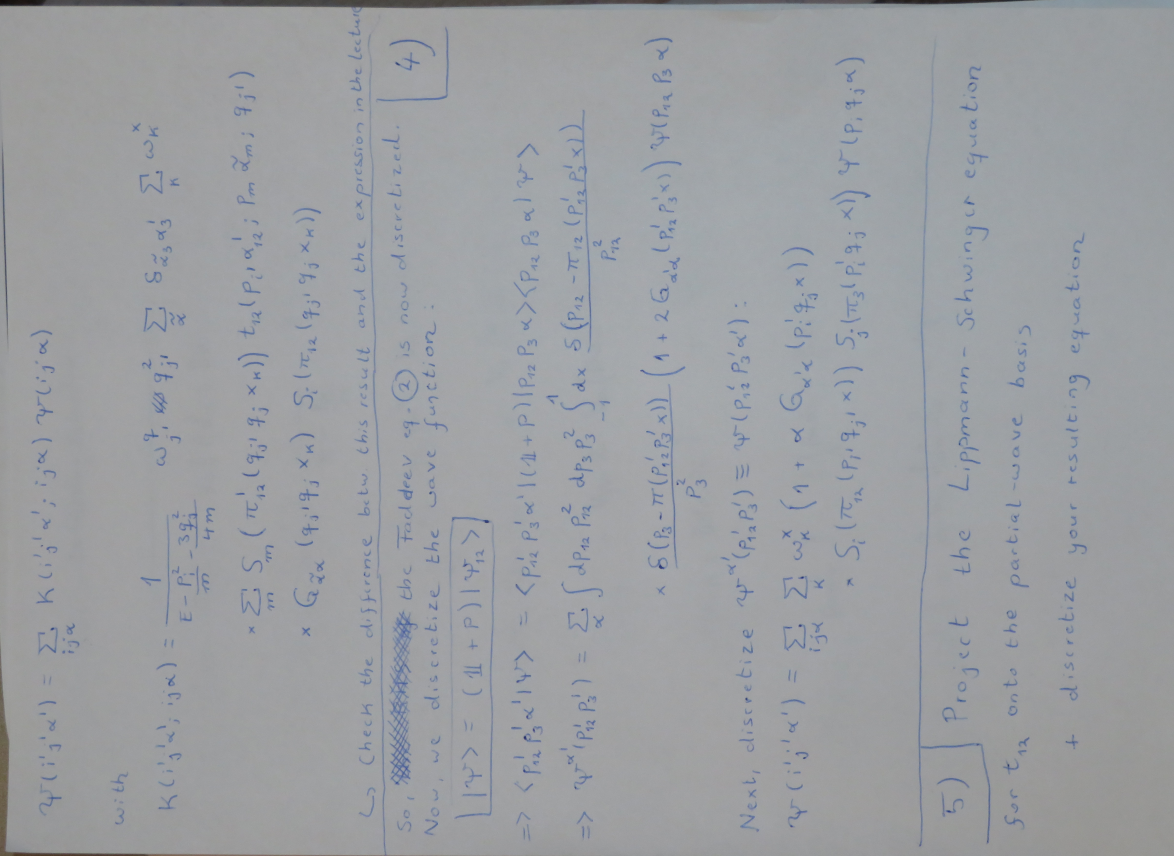 ψ(i'j'α') = Σ_{ijα} K(i'j'α'; ijα) ψ(ijα)
with
K(i'j'α'; ijα) = 1/(E - p_i'^2/m - 3q_j'^2/4m) ω_j'^q q_j'^2 Σ_α̃ δ_{α̃_3 α_3'} Σ_k ω_k^x
× Σ_m S_m (π'_12 (q_j' q_j x_k)) t_12 (p_i' α'_12; p_m α̃_m; q_j')
× G_{α̃α} (q_j' q_j x_k) S_i (π_12 (q_j' q_j x_k))
↳ Check the difference betw. this result and the expression in the lecture
So, the Faddeev eq. ② is now discretized. 4)
Now, we discretize the wave function:
|Ψ> = (𝟙 + P)|ψ_12>
=> <p'_12 p'_3 α'|Ψ> = <p'_12 p'_3 α'|(𝟙+P)|p_12 p_3 α><p_12 p_3 α|ψ>
=> Ψ^{α'}(p'_12 p'_3) = Σ_α ∫ dp_12 p_12^2 dp_3 p_3^2 ∫_{-1}^{1} dx δ(p_12 - π_12 (p'_12 p'_3 x))/p_12^2
× δ(p_3 - π(p'_12 p'_3 x))/p_3^2 (1 + 2G_{α'α} (p'_12 p'_3 x)) ψ(p_12 p_3 α)
Next, discretize Ψ^{α'}(p'_12 p'_3) ≡ Ψ(p'_12 p'_3 α'):
Ψ(i'j'α') = Σ_{ijα} Σ_k ω_k^x (1 + α G_{α'α} (p'_i q'_j x))
× S_i (π_12 (p_i' q_j' x)) S_j (π_3 (p'_i q'_j x)) ψ(p_i q_j α)
5) Project the Lippmann-Schwinger equation
for t_12 onto the partial-wave basis
+ discretize your resulting equation